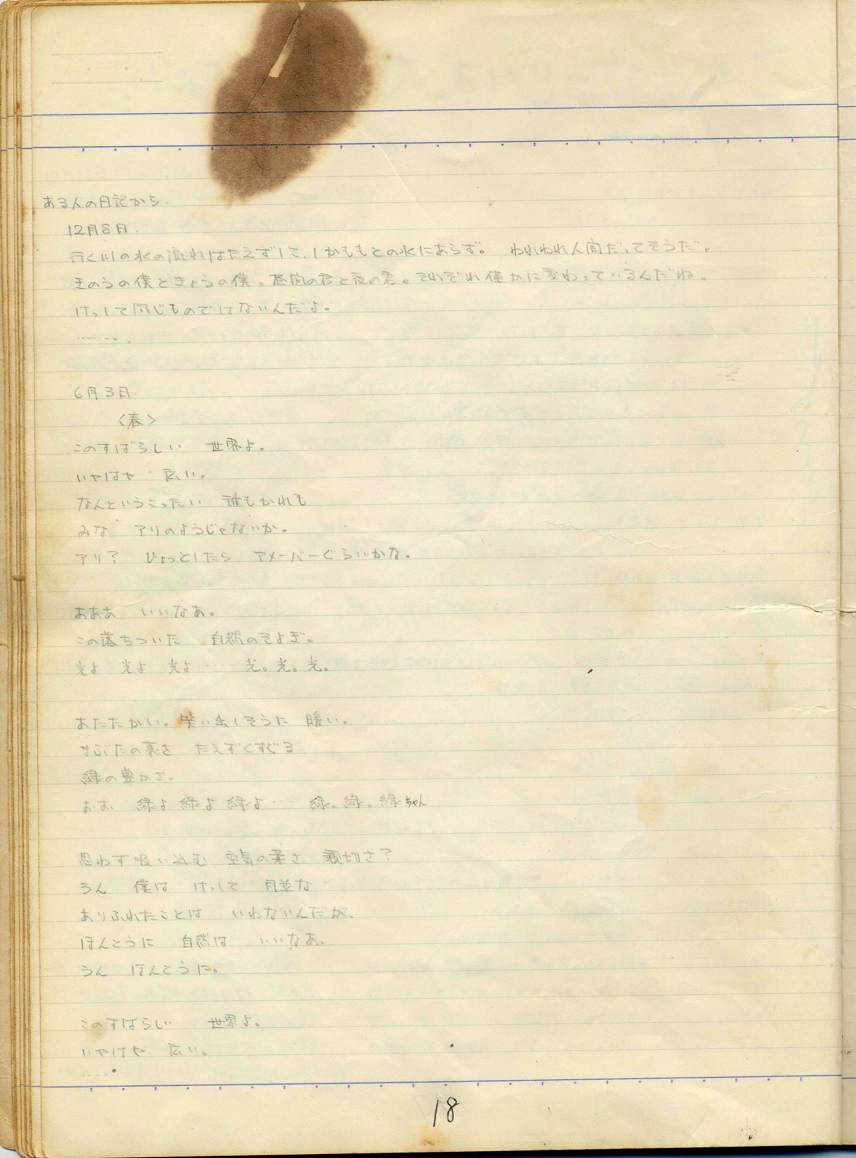 ある人の日記から.
12月8日.
行く川の水の流れはたえずして、しかももとの水にあらず。 われわれ人間だってそうだ。
きのうの僕ときょうの僕。昼間の君と夜の君。それぞれ僅かに変わっているんだね。
けっして同じものではないんだよ。
…….
6月3日.
〈春〉
このすばらしい 世界よ。
いやはや 広い。
なんというこったい 誰もかれも
みな アリのようじゃないか。
アリ? ひょっとしたら アメーバーぐらいかな。
おああ いいなあ。
この落ちついた 自然のそよぎ。
光よ 光よ 光よ …… 光。光。光。
あたたかい。笑い出しそうに 暖い。
まぶたの裏を たえずくすぐる
緑の豊かさ。
おお 緑よ 緑よ 緑よ… 緑。緑。緑ちゃん
思わず吸い込む 空気の柔さ 親切さ?
うん 僕は けっして 月並な
ありふれたことは いわないんだが、
ほんとうに 自然は いいなあ。
うん ほんとうに。
このすばらしい 世界よ。
いやはや 広い。
……
18